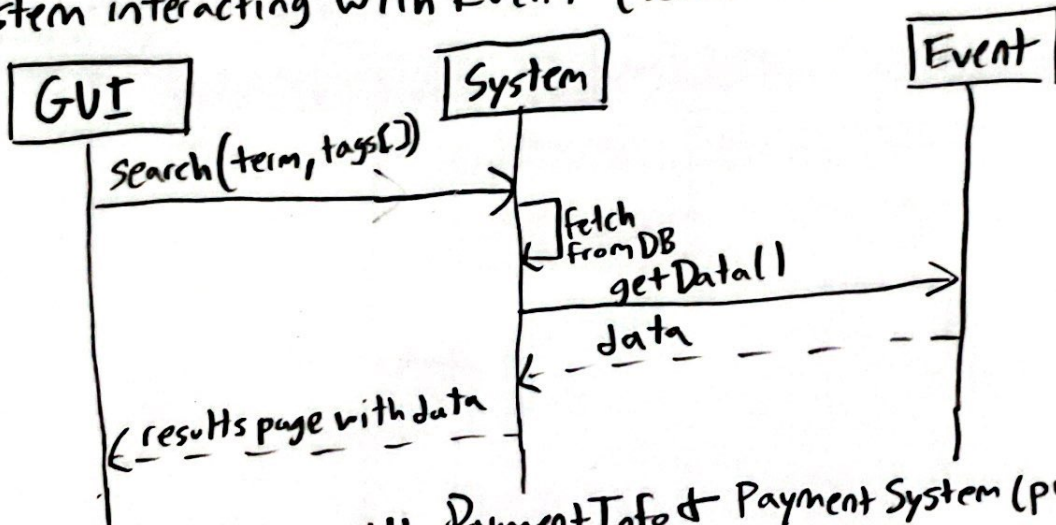 interacting with Event
GUI
System
Event
search(term, tags[])
Fetch
from DB
getData()
data
results page with data
PaymentInfo & Payment System